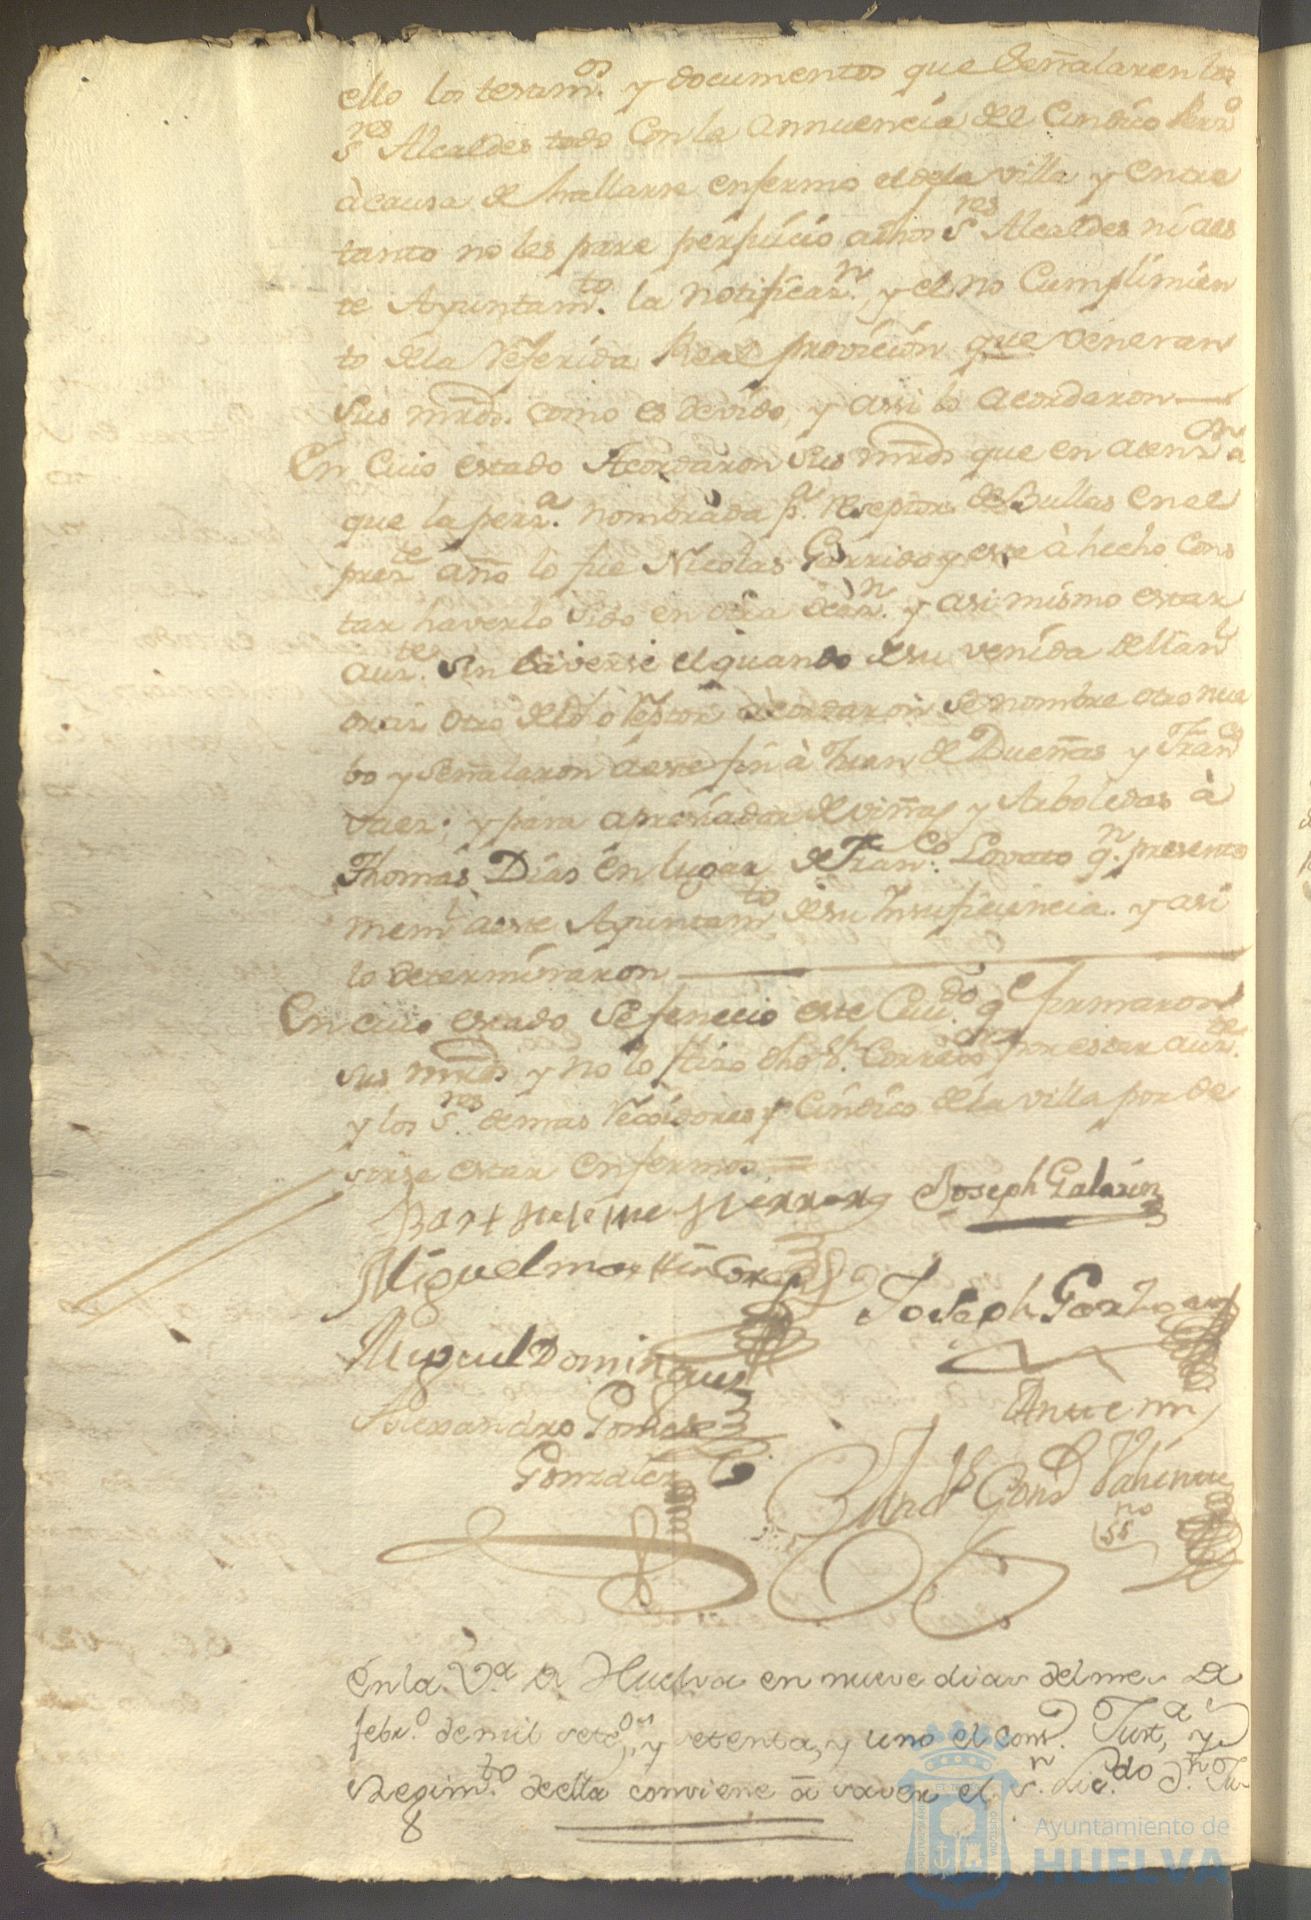 ello los testim.os y documentos que señalaren los
s.res Alcaldes todo con la annuencia del Cindico Perr.o
à causa de hallarse enfermo el dela villa y entre
tanto no les pare perjuicio a dhos S.res Alcaldes ni aes
te Ayuntam.to la notificaz.n, y el no Cumplimien
to dela referida Real provición que veneran
sus mrds. como es devido, y assi lo acordaron
En cuio estado Acordaron sus mrds que en atenz.on à
que la perz.a nombrada p.a reseptor de Bullas en el
prez.te año lo fue Nicolas Garrido y este à hecho cons
tar haverlo sido en otra ocaz.n y asi mismo estar
auz.te sin saverse el quando de su venida
otro acordaron se nombre otro nue
bo y señalaron aeste fin à Juan de Dueñas y Fran.co
Vaez; y para apreciador de viñas y Arboledas à
Thomás Días en lugar de Fran.co Lovato q.n presento
mem.l aeste Ayuntam.to de su Insuficiencia. y asi
lo determinaron
En cuio estado se fenecio este Cav.do q.e firmaron
sus mrds y no lo hizo dho S.r Correg.or por estar auz.te
y los S.res demas Regidores y Cindico dela villa por de
sirse estar enfermos
Bartholome Herrera Joseph Galarin
Miguel martin
Joseph Garzia
Miguel Dominguez
Alexandro Gomez
Ante mi
Gonzalez
Gonz Valiente
ss.no
En la V.a de Huelva en nueve dias del mes de
febr.o de mil setec.os y setenta, y uno el cons.o Just.a y
Regim.to de ella conviene a saver el s.r lic.do d.n Ju
8
Ayuntamiento de
HUELVA